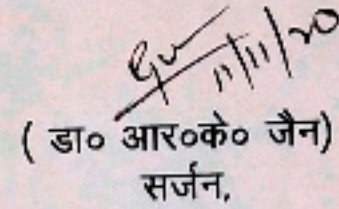 11/11/20
( डा० आर०के० जैन)
सर्जन,